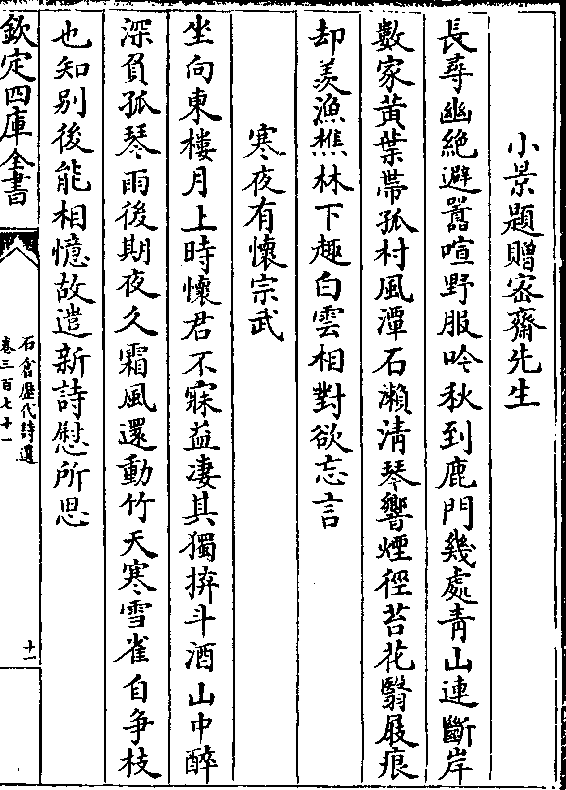 小景題贈宻齋先生
長尋幽絶避嚣喧野服吟秋到鹿門幾處青山連斷岸
數家黄葉帶孤村風潭石瀨清琴響煙徑苔花翳屐痕
却羡漁樵林下趣白雲相對欲忘言
寒夜有懷宗武
坐向東樓月上時懷君不寐益凄其獨拚斗酒山中醉
深負孤琴雨後期夜久霜風還動竹天寒雪雀自争枝
也知别後能相憶故遣新詩慰所思
欽定四庫全書
石倉歷代詩選
卷三百七十一
十一